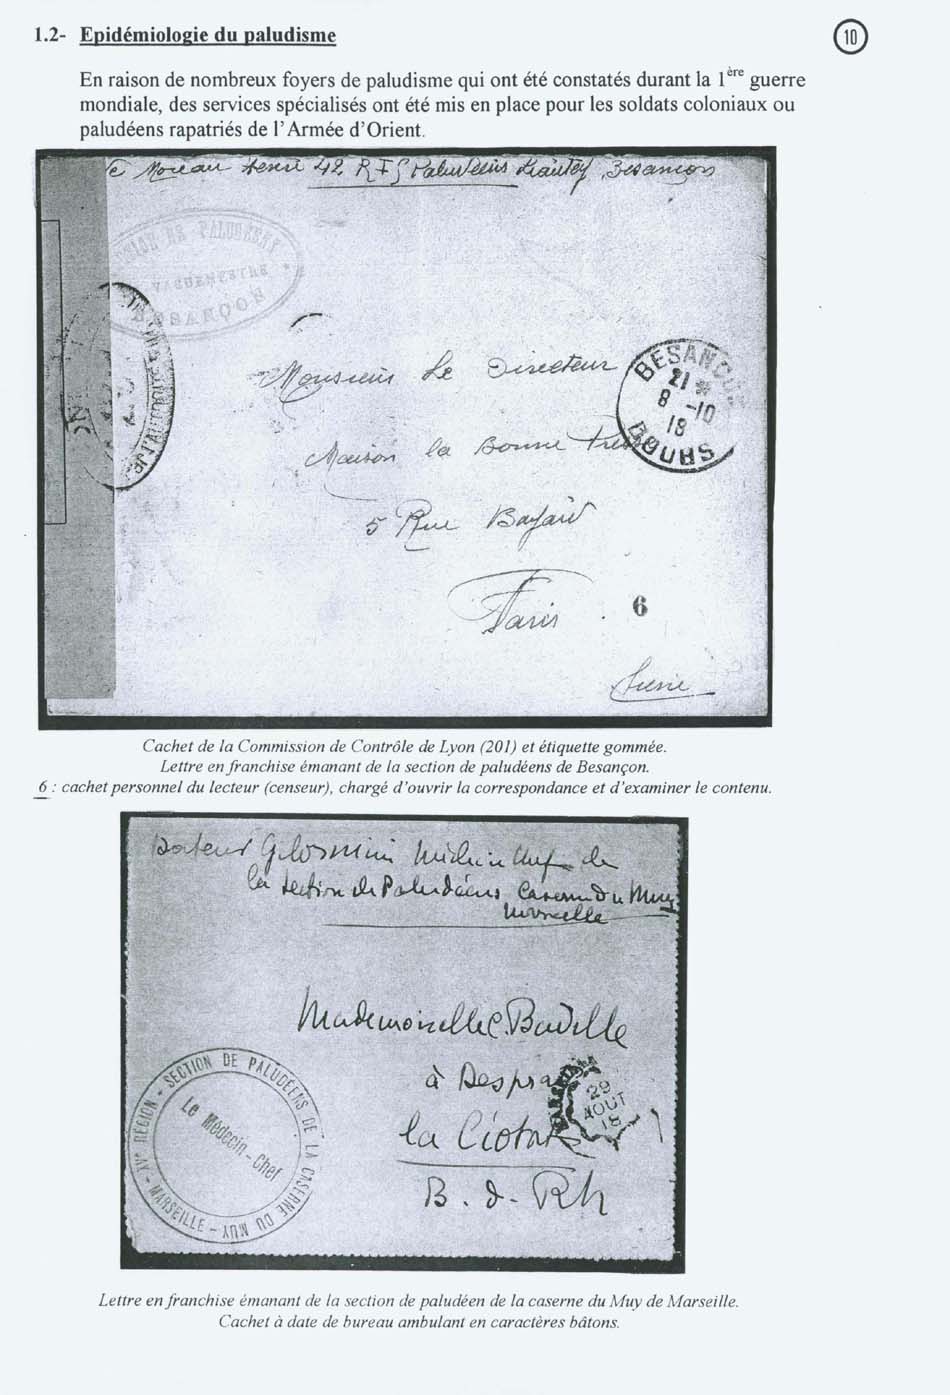 1.2- Epidémiologie du paludisme
10
En raison de nombreux foyers de paludisme qui ont été constatés durant la 1ère guerre
mondiale, des services spécialisés ont été mis en place pour les soldats coloniaux ou
paludéens rapatriés de l'Armée d'Orient.
Moreau Henri 42 R I Paludéens Lyautey, Besançon
DE PALUDÉENS
VAGUEMESTRE *
BESANÇON
Monsieur Le Directeur
BESANÇON
21 *
8 -10
18
DOUBS
Maison la Bonne Presse
5 Rue Bayard
Paris
6
Seine
Cachet de la Commission de Contrôle de Lyon (201) et étiquette gommée.
Lettre en franchise émanant de la section de paludéens de Besançon.
6 : cachet personnel du lecteur (censeur), chargé d'ouvrir la correspondance et d'examiner le contenu.
Docteur médecin chef de
la section de Paludéens Caserne du Muy
Marseille
Mademoiselle
à
29
AOUT
18
la Ciotat
B. d. Rh
XVe RÉGION - SECTION DE PALUDÉENS DE LA CASERNE DU MUY - MARSEILLE -
Le Médecin-Chef
Lettre en franchise émanant de la section de paludéen de la caserne du Muy de Marseille.
Cachet à date de bureau ambulant en caractères bâtons.